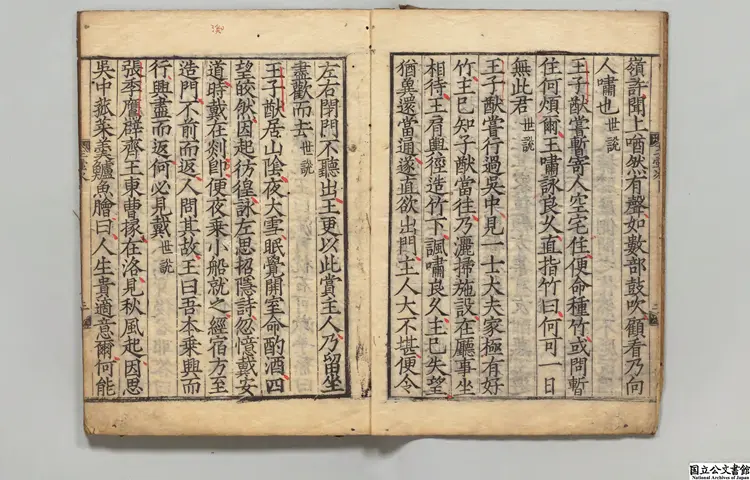 嶺許聞上然有聲如數部鼓吹顧看乃向
人嘯也世說
王子猷嘗暫寄人空宅住便命種竹或問暫
住何煩爾王嘯詠良久直指竹曰何可一日
無此君世說
王子猷嘗行過吳中見一士大夫家極有好
竹主已知子猷當往乃灑掃施設在廳事坐
相待王肩輿徑造竹下諷嘯良久主已失望
猶冀還當通遂直欲出門主人大不堪便令
左右閉門不聽出王更以此賞主人乃留坐
盡歡而去世說
王子猷居山陰夜大雪眠覺開室命酌酒四
望皎然因起彷徨詠左思招隱詩忽憶戴安
道時戴在剡即便夜乘小船就之經宿方至
造門不前而返人問其故王曰吾本乘興而
行興盡而返何必見戴世說
張季鷹辟齊王東曹掾在洛見秋風起因思
吳中菰菜羹鱸魚膾曰人生貴適意爾何能
国立公文書館
National Archives of Japan